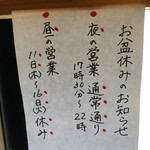 お盆休みのお知らせ
夜の営業通常通り
17時30分〜22時
昼の営業
11日(木)〜16日(火)休み